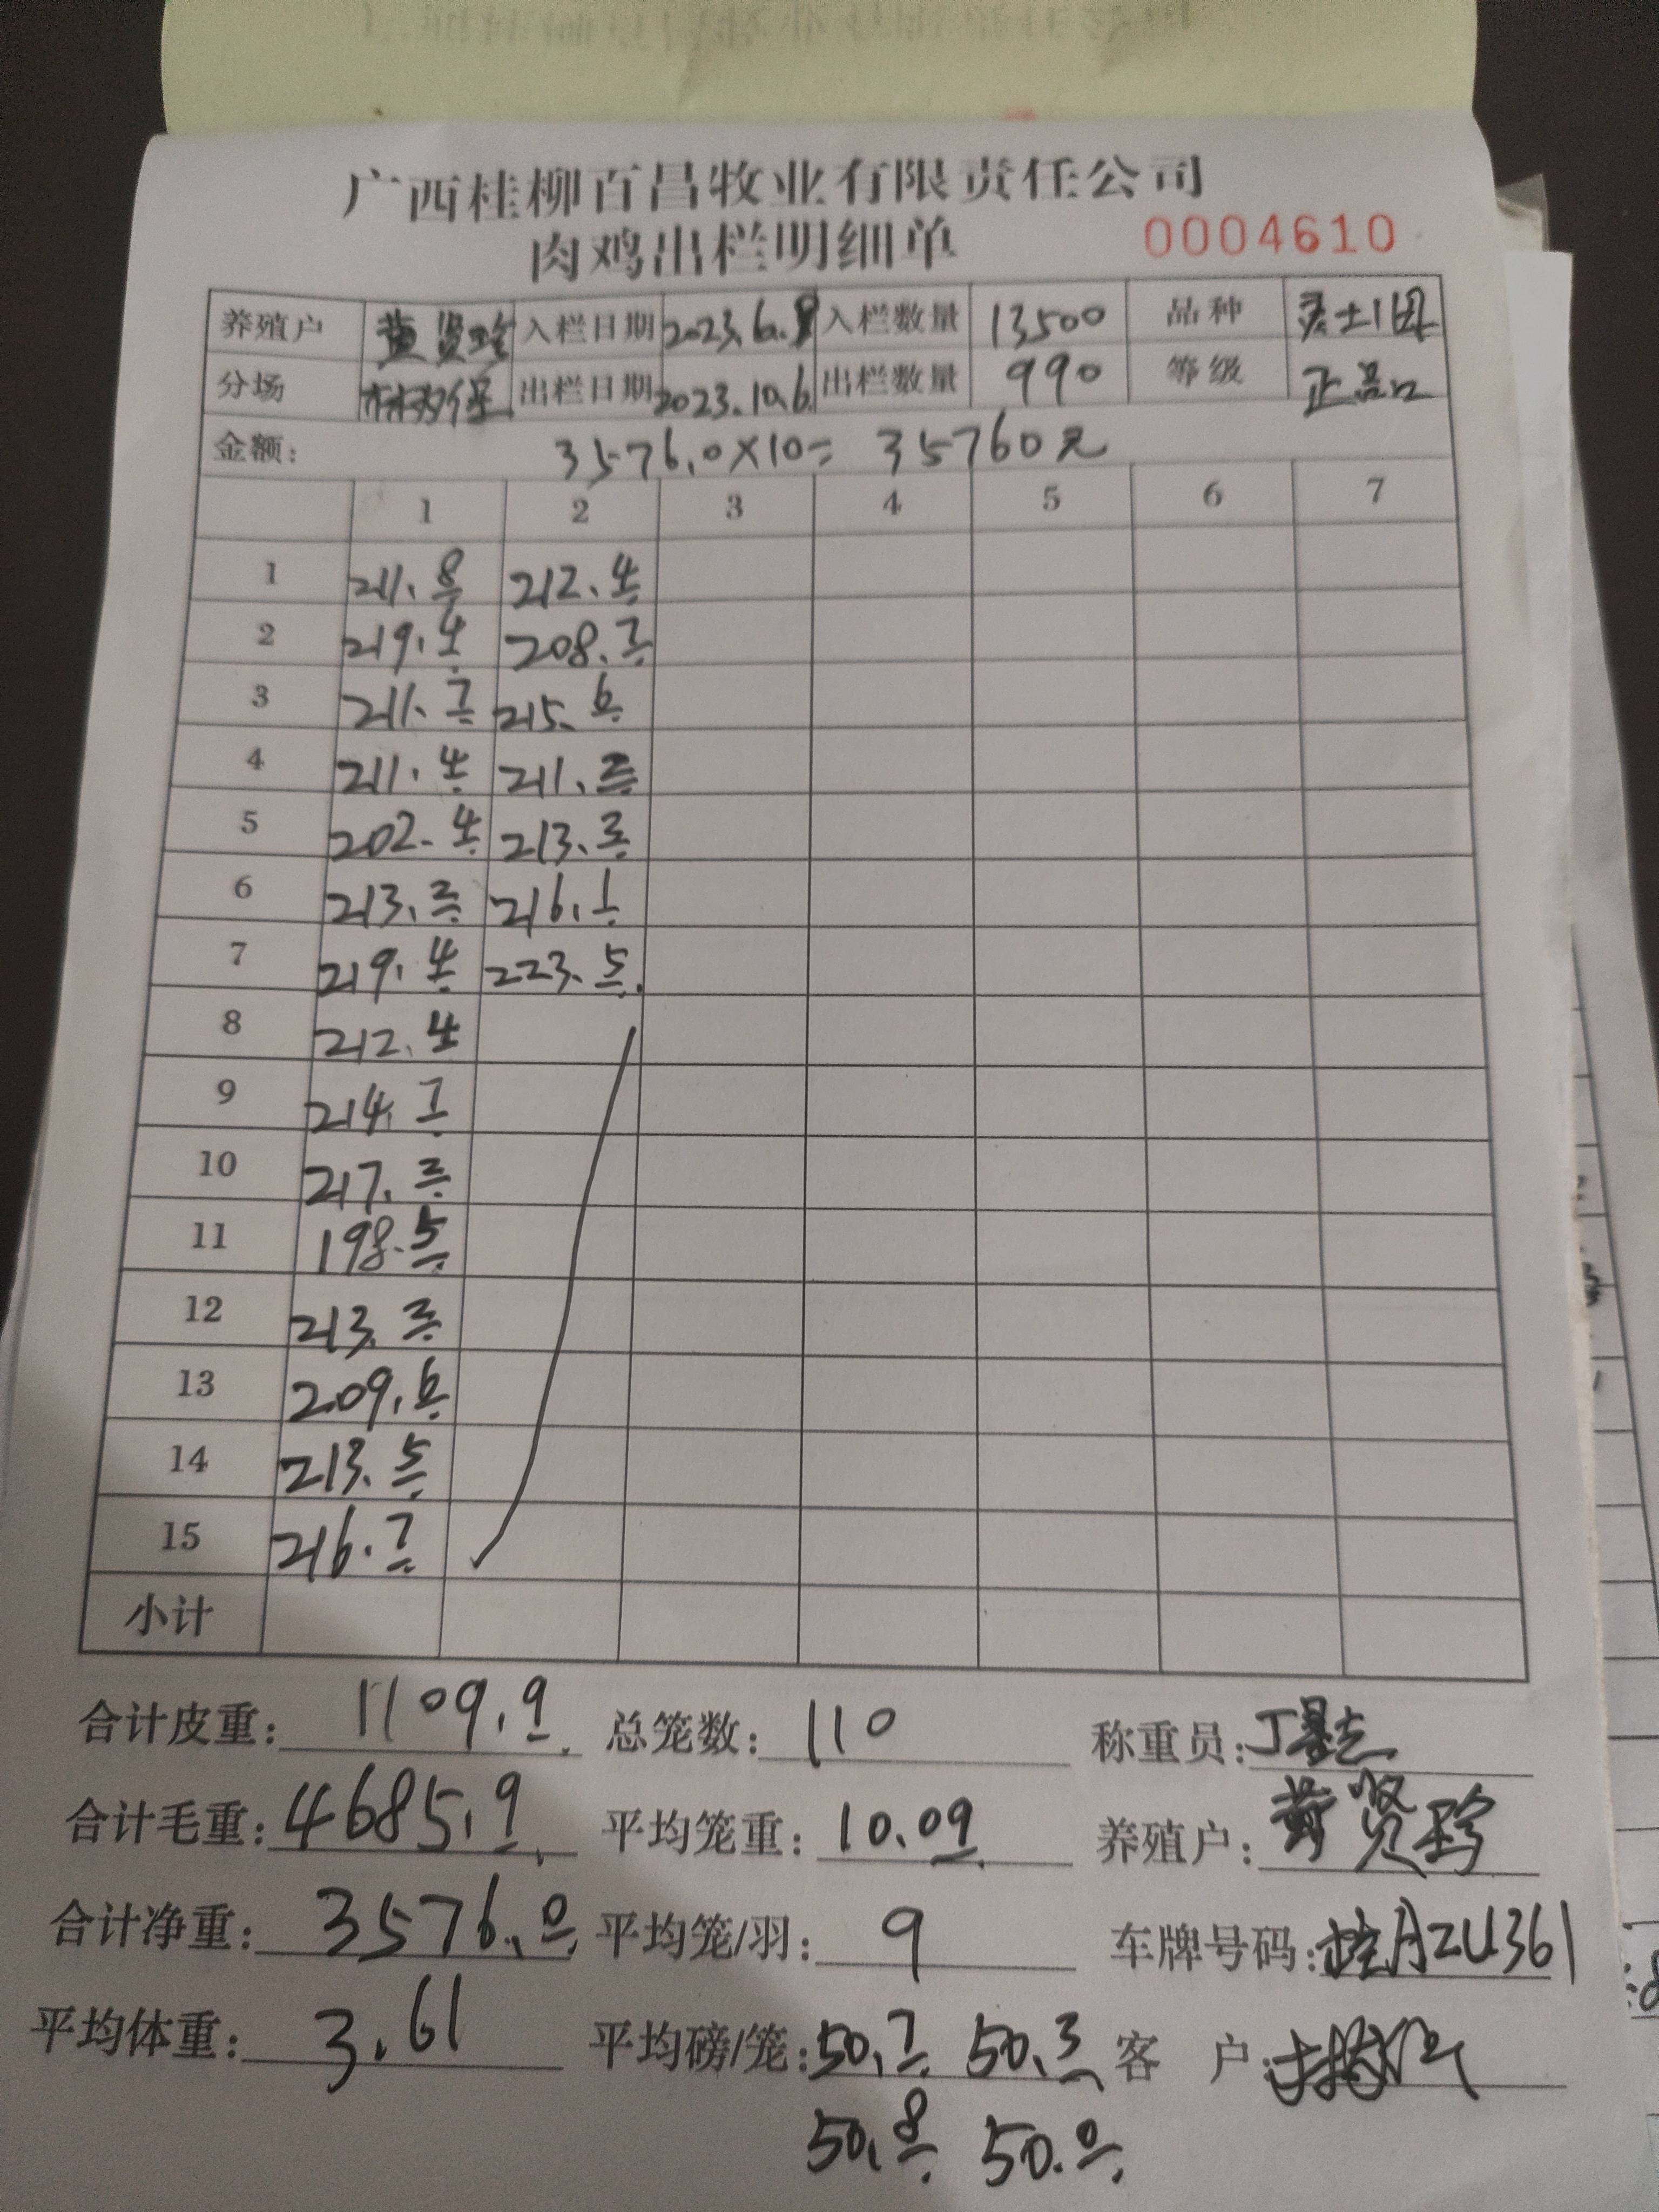 广西桂柳百昌牧业有限责任公司
肉鸡出栏明细单 0004610
养殖户 黄贤珍 入栏日期 2023.6.8 入栏数量 13500 品种
分场 出栏日期 2023.10.6 出栏数量 990 等级 正品
金额: 3576.0×10= 35760元
1 2 3 4 5 6 7
1 211.8 212.4
2 219.4 208.7
3 211.7 215.6
4 211.4 211.2
5 202.4 213.3
6 213.2 216.1
7 219.4 223.5
8 212.4
9 214.7
10 217.2
11 198.5
12 213.3
13 209.6
14 213.5
15 216.7
小计
合计皮重: 1109.9 总笼数: 110 称重员:
合计毛重: 4685.9 平均笼重: 10.09 养殖户: 黄贤珍
合计净重: 3576.0 平均笼/羽: 9 车牌号码: 桂AZU361
平均体重: 3.61 平均磅/笼: 50.7 50.3 客 户:
50.8 50.0